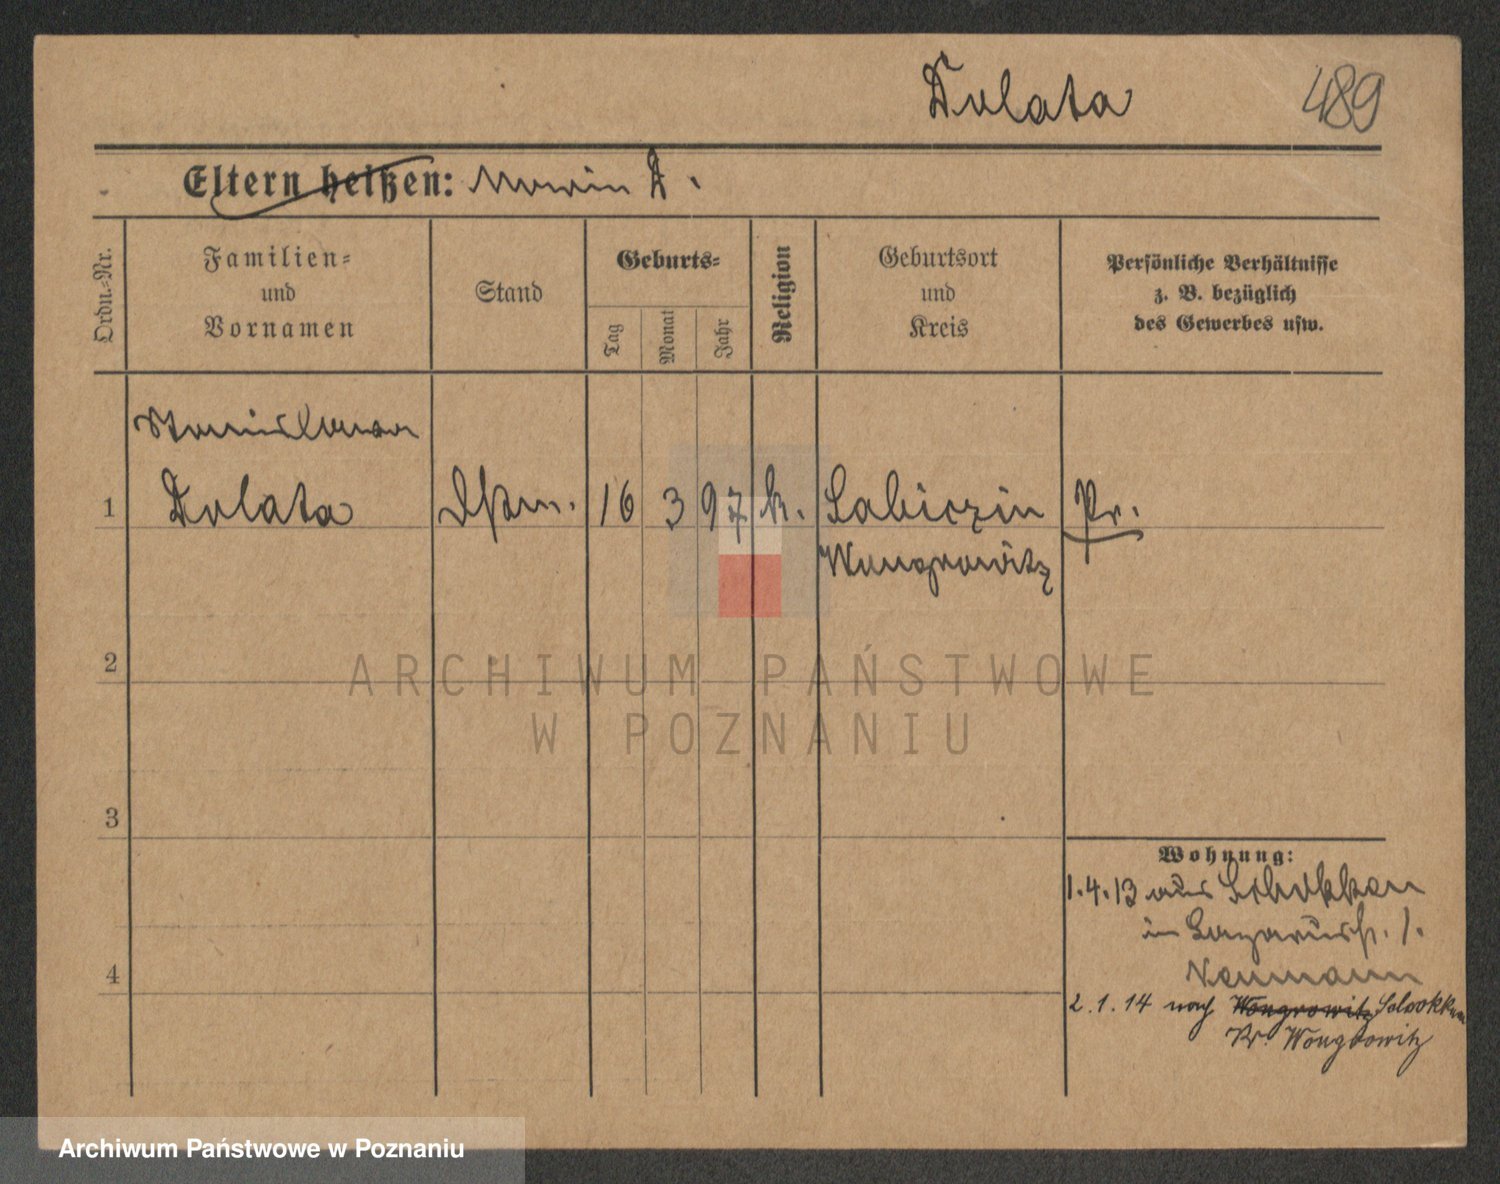 Dolata 489
Eltern heißen: D.
Ordn.-Nr.
Familien-
und
Vornamen
Stand
Geburts-
Tag
Monat
Jahr
Religion
Geburtsort
und
Kreis
Persönliche Verhältnisse
z. B. bezüglich
des Gewerbes usw.
Stanislawa
1 Dolata Dßm. 16 3 97 k. Pr.
Wongrowitz
2
ARCHIWUM PAŃSTWOWE
W POZNANIU
3
Wohnung:
1.4.13 aus Schokken
in Lazarusstr. 1.
Neumann
4
2.1.14 nach Wongrowitz Schokken
Kr. Wongrowitz
Archiwum Państwowe w Poznaniu